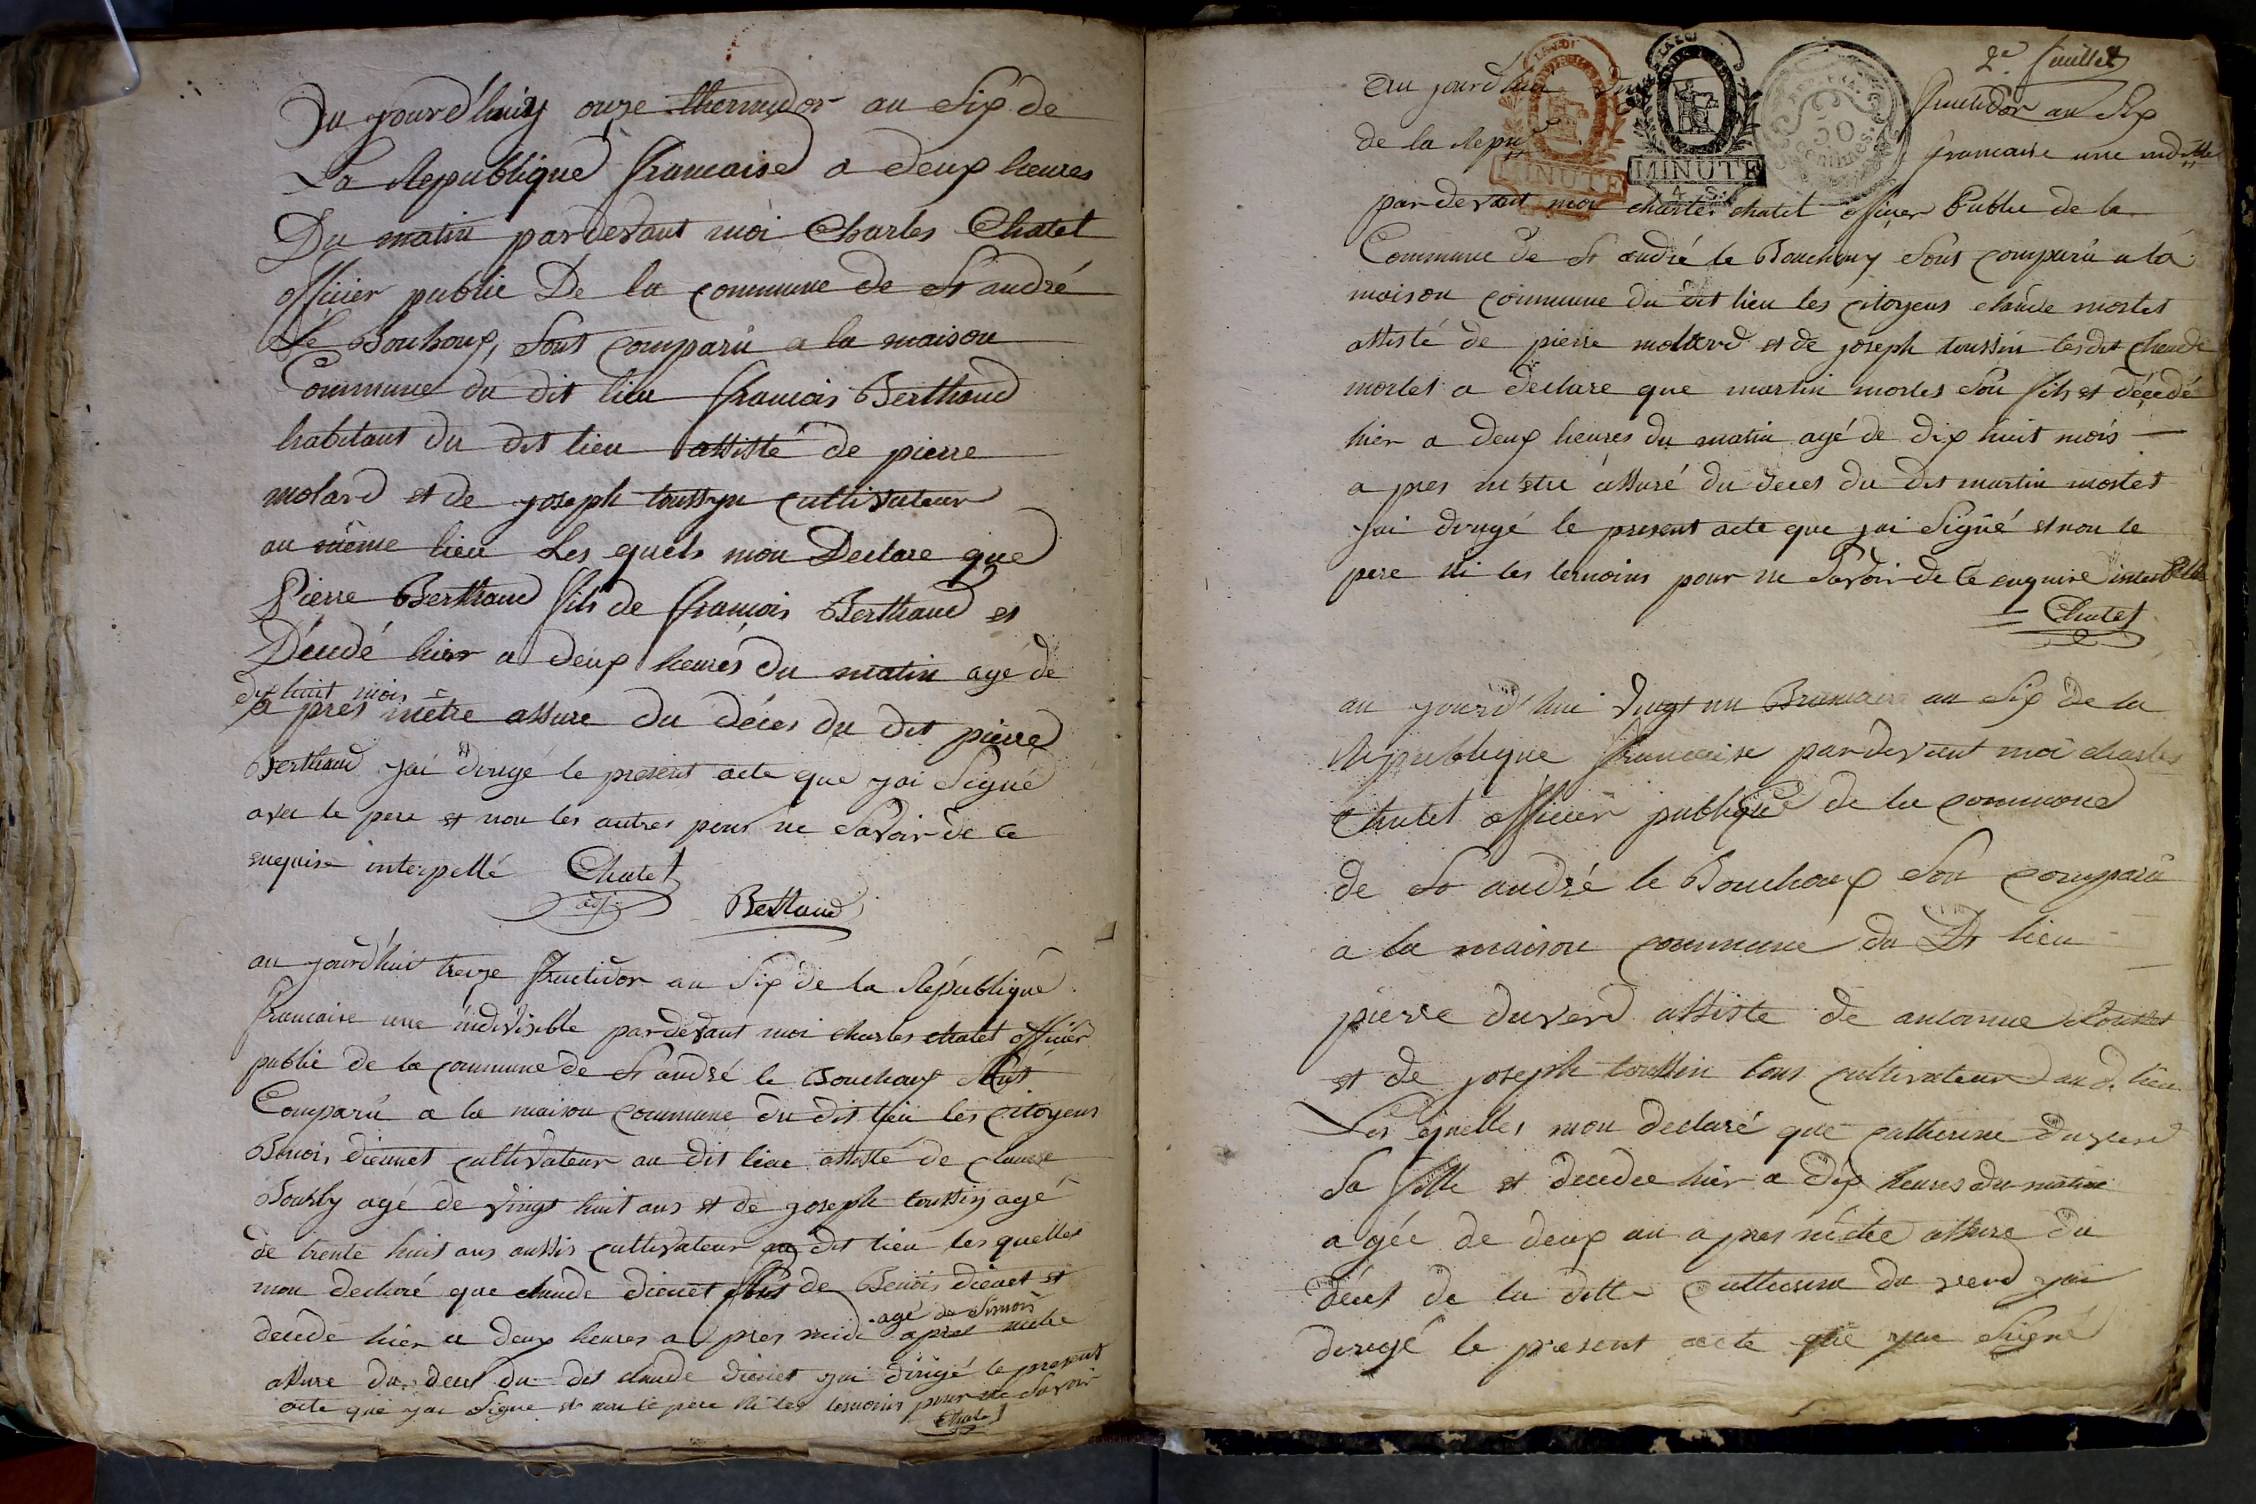 Du jourd'huiy onze thermidor an Six de
La Republique francaise a deux heures
Du matin pardevant moi Charles Chatel
officier public De la commune de St andré
Le Bouchoux, sont comparû a la maison
Commune du dit lieu francois Berthaud
habitant du dit lieu assisté de pierre
molard et de joseph toussyn cultivateur
au même lieu Les quels mon Declare que
Pierre Berthaud fils de francois Berthaud et
Décedé hier a deux heures du matin agé de
dix huit mois
a pres mêtre assure du déces du dit pierre
Berthaud jai dirigé le present acte que jai Signé
avec le pere et non les autres pour ne Savoir de ce
enquise interpellé Chatel
adj.
Berthaud
au jourd'hui treize fructidor an Six de la Républiqué
francaise une indivisible pardevant moi charles chatel officier
public de la commune de St andré le Bouchoux sont
Comparû a la maison commune du dit lieu les citoyens
Benois dieunet cultivateur au dit lieu assisté de claude
agé de vingt huit ans et de joseph toussin agé
de trente huit ans aussis cultivateur au dit lieu les quelles
mon declaré que claude dieuet fils de Benois dieuet et
decedé hier a deux heures a pres midi agé de Simois apres metre
assure du deces du dit claude dieuet jai dirigé le present
acte que jai Signe et non le pere ni les temoins pour ne Savoir
Chatel
2e. feuillet
au jourd'hui fructidor an Six
de la Repu francaise une indivisible
pardevant moi charles chatel officier Public de la
Commune de St andré le Bouchoux Sont comparû a la
maison commune du dit lieu les citoyens claude mortel
assisté de pierre mollard et de joseph toussin lesdit claude
mortel a declare que martin mortel Son fils et décedé
hier a deux heures du matin agé de dix huit mois
a pres mêtre assuré du deces du dit martin mortel
jai dirigé le present acte que jai Signé et non le
pere ni les temoins pour ne Savoir de ce enquire interpelle
Chatel
au jourd'hui vingt un Brumaire an Six de la
République francaise pardevant moi charles
Chatel officier publique de la commune
de St andré le Bouchoux Son comparû
a la maison commune du Dt lieu
pierre duverd assiste de antoinne
et de joseph toussin tous cultivateur au d. lieu
Les quelles mon declaré que catherine duverd
Sa fille et decedee hier a dix heures du matin
agée de deux an apres mêtre assure du
déces de la ditte catherine du verd jai
dirigé le present acte que jai Signé
MINUTE
MINUTE
50
centimes.